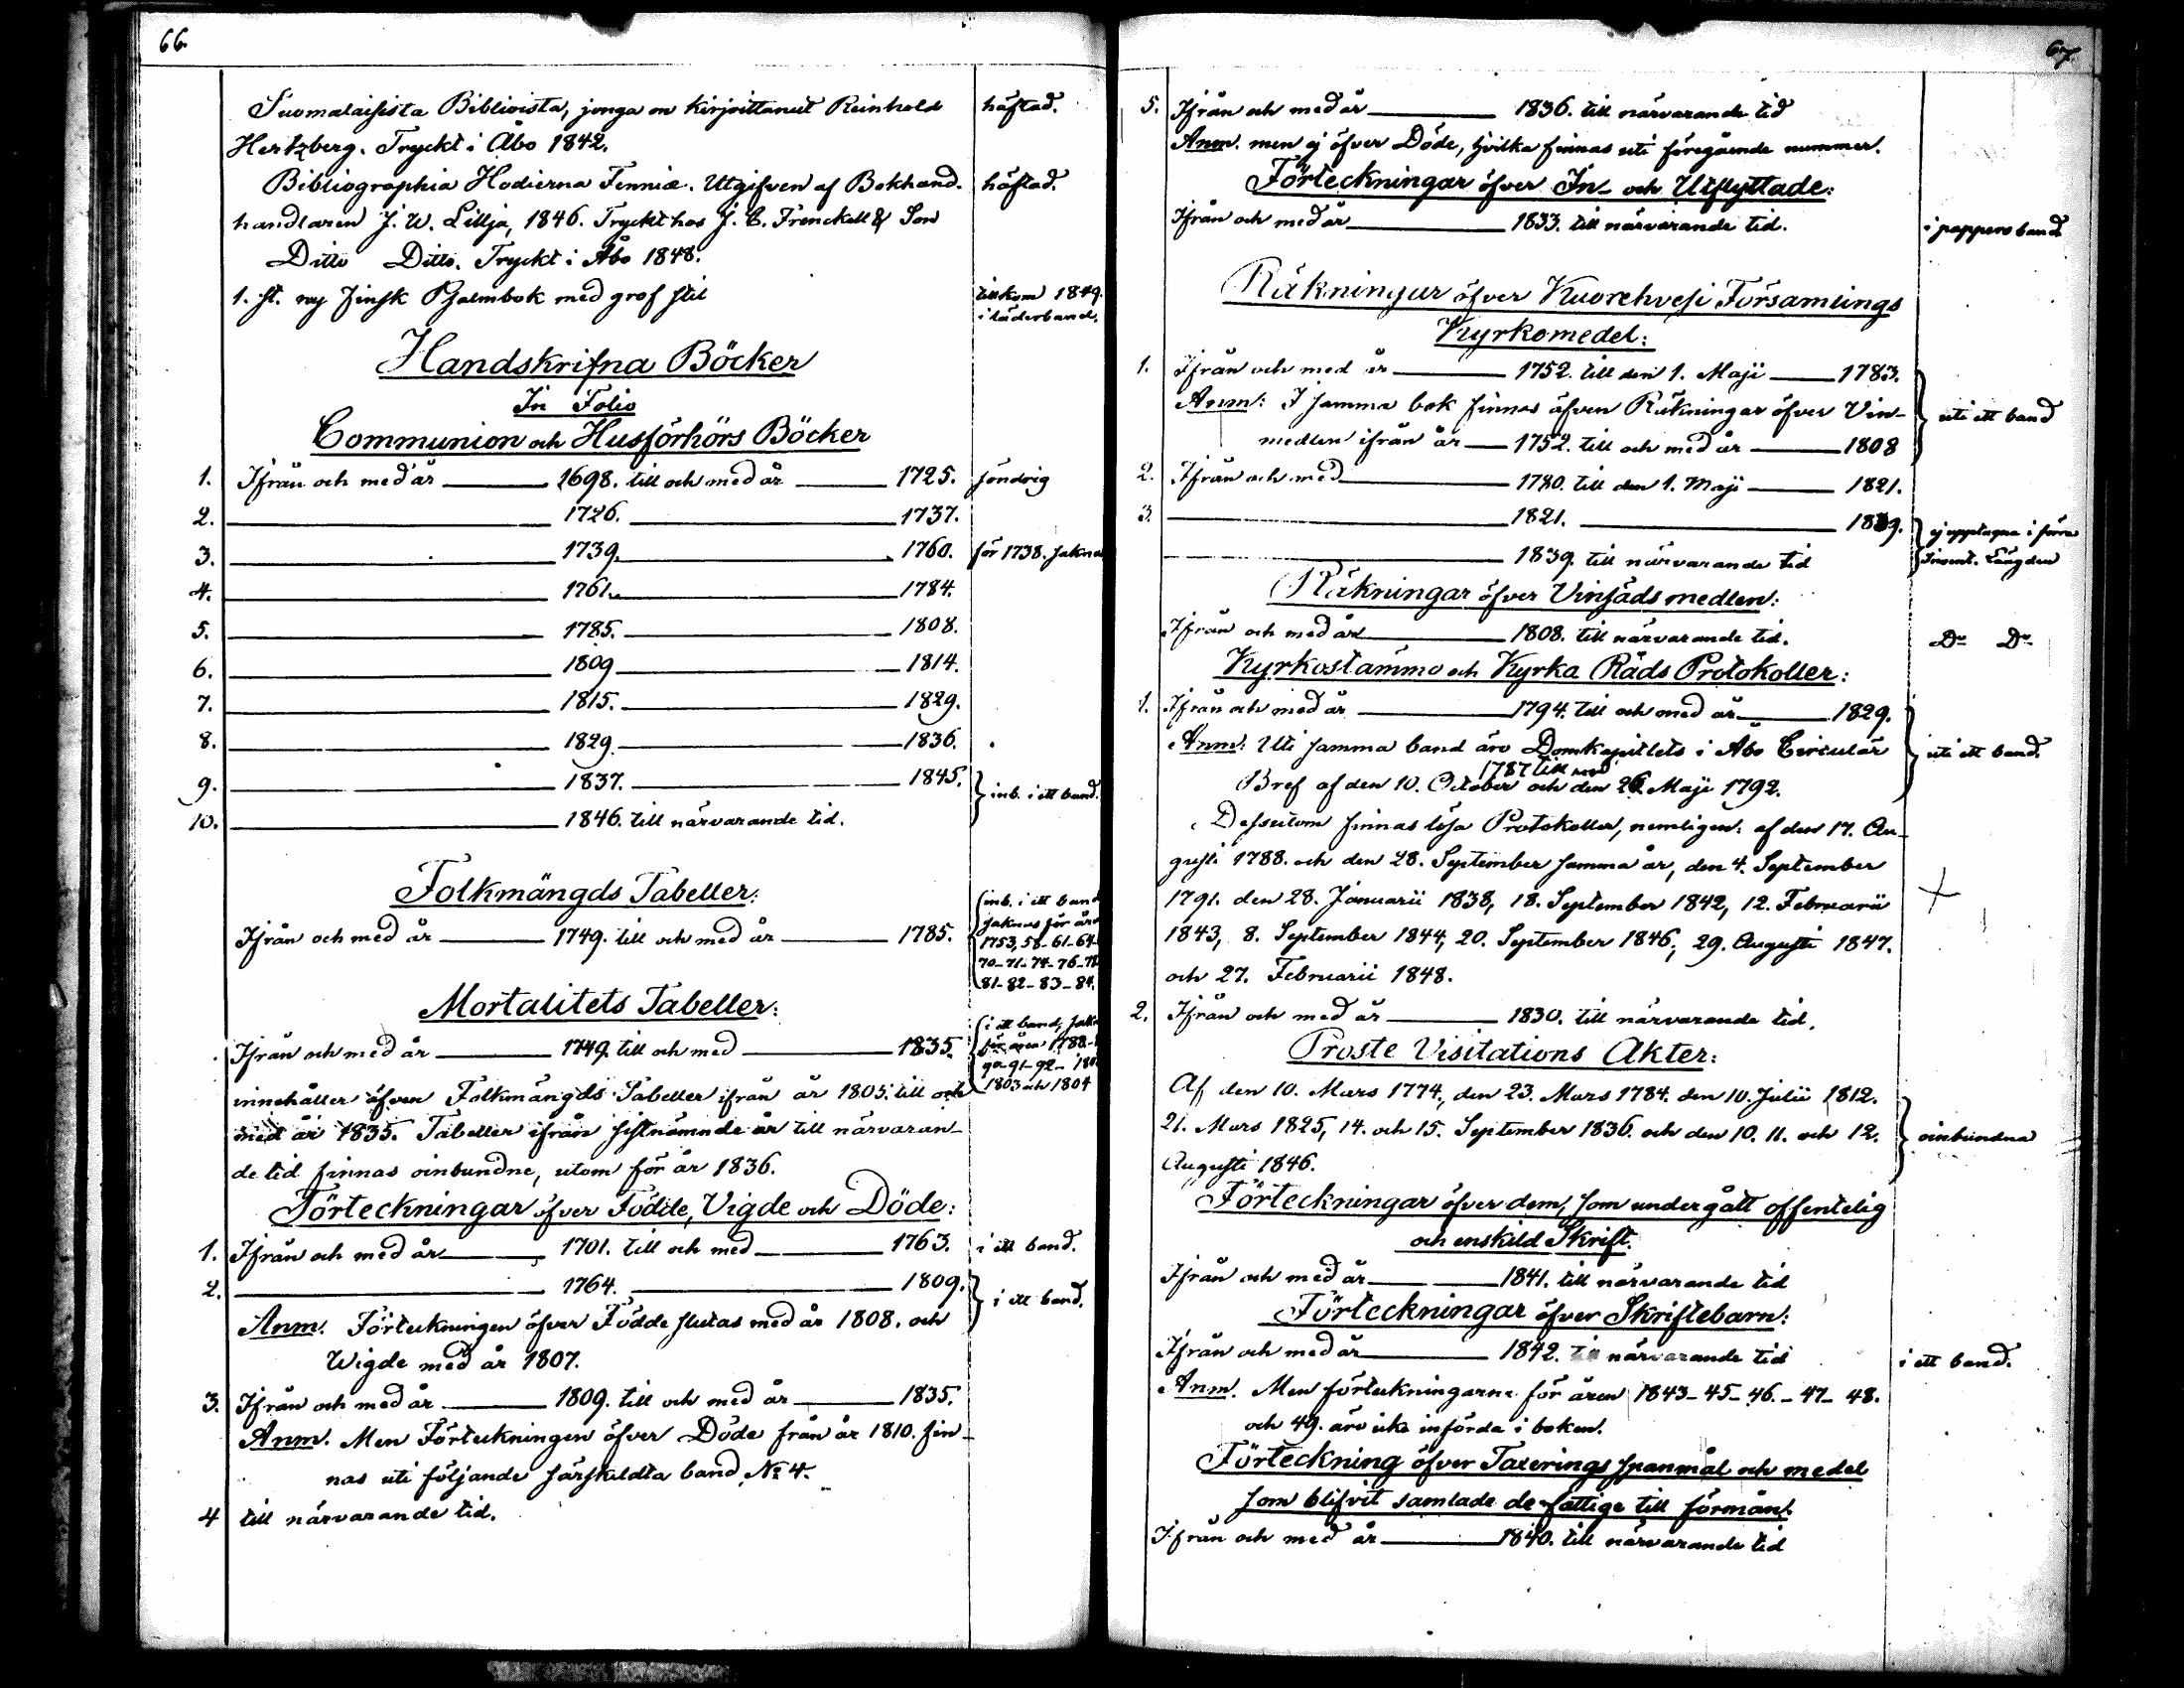 66.
Suomalaisista Biblioista, jonga on kirjoittanut Reinhold häftad.
Hertzberg. Tryckt i Åbo 1842.
Bibliographia Hodierna Fenniæ. Utgifven af Bokhand- häftad.
handlaren J. W. Lillja, 1846. Tryckt hos J. C. Frenckell & Son
Ditto Ditto. Tryckt i Åbo 1848.
1. st. ny finsk Psalmbok med grof stil tillkom 1849.
i läderband.
Handskrifna Böcker
In Folio
Communion och Husförhörs Böcker
1. Ifrån och med år 1698. till och med år 1725. söndrig
2. 1726. 1737.
3. 1739. 1760. för 1738. sakna
4. 1761. 1784.
5. 1785. 1808.
6. 1809 1814.
7. 1815. 1829.
8. 1829. 1836.
9. 1837. 1845. inb. i ett band.
10. 1846. till närvarande tid.
Folkmängds Tabeller:
Ifrån och med år 1749. till och med år 1785.
inb. i ett band
saknas för åre
1753, 58-61-64-
70-71-74-76-78
81-82-83-84.
Mortalitets Tabeller:
Ifrån och med år 1749. till och med 1835.
i ett band, sakn
för åren 1788-
90-91-92- 180
1803 och 1804
innehåller äfven Folkmängds Tabeller ifrån år 1805. till och
med år 1835. Tabeller ifrån sistnämnde år till närvaran-
de tid finnas oinbundne, utom för år 1836.
Förteckningar öfver Födde, Vigde och Döde:
1. Ifrån och med år 1701. till och med 1763. i ett band.
2. 1764. 1809. i ett band.
Anm. Förteckningen öfver Födde slutas med år 1808. och
Wigde med år 1807.
3. Ifrån och med år 1809. till och med år 1835.
Anm. Men Förteckningen öfver Döde från år 1810. fin-
nas uti följande särskildta band No 4.
4 till närvarande tid.
67.
5. Ifrån och med år 1836. till närvarande tid
Anm. men ej öfver Döde, hvilka finnas uti föregående nummer.
Förteckningar öfver In- och Utflyttade:
Ifrån och med år 1833. till närvarande tid. i pappersband
Räkningar öfver Kuorehvesi Församlings
Kyrkomedel:
1. Ifrån och med år 1752. till den 1. Maji 1783.
Anm: I samma bok finnes äfven Räkningar öfver Vin- uti ett band
medlen ifrån år 1752. till och med år 1808
2. Ifrån och med 1780. till den 1. Maji 1821.
3. 1821. 1839. ej upptagne i förra
1839. till närvarande tid Invent. Längden
Räkningar öfver Vinsäds medlen:
Ifrån och med år 1808. till närvarande tid. Do Do
Kyrkostämmo och Kyrko Råds Protokoller:
1. Ifrån och med år 1794. till och med år 1829.
Anm: Uti samma band äro Domkapitlets i Åbo Circulär uti ett band.
1787 till med
Bref af den 10. October och den 26. Maji 1792.
Dessutom finnas lösa Protokoller, nemligen: af den 17. Au-
gusti 1788. och den 28. September samma år, den 4. September
1791. den 28. Januarii 1838, 18. September 1842, 12. Februarii
1843, 8. September 1844, 20. September 1846, 29. Augusti 1847.
och 27. Februarii 1848.
2. Ifrån och med år 1830. till närvarande tid.
Proste Visitations Akter:
Af den 10. Mars 1774., den 23. Mars 1784. den 10. Julii 1812.
21. Mars 1825, 14. och 15. September 1836. och den 10. 11. och 12. oinbundna
Augusti 1846.
Förteckningar öfver dem, som undergått offentelig
och enskild Skrift.
Ifrån och med år 1841. till närvarande tid
Förteckningar öfver Skriftebarn:
Ifrån och med år 1842. till närvarande tid i ett band.
Anm. Men förteckningarne för åren 1843-45-46.-47-48.
och 49. äro icke införda i boken.
Förteckning öfver Taxerings spanmål och medel
som blifvit samlade de fattige till förmån.
Ifrån och med år 1840. till närvarande tid